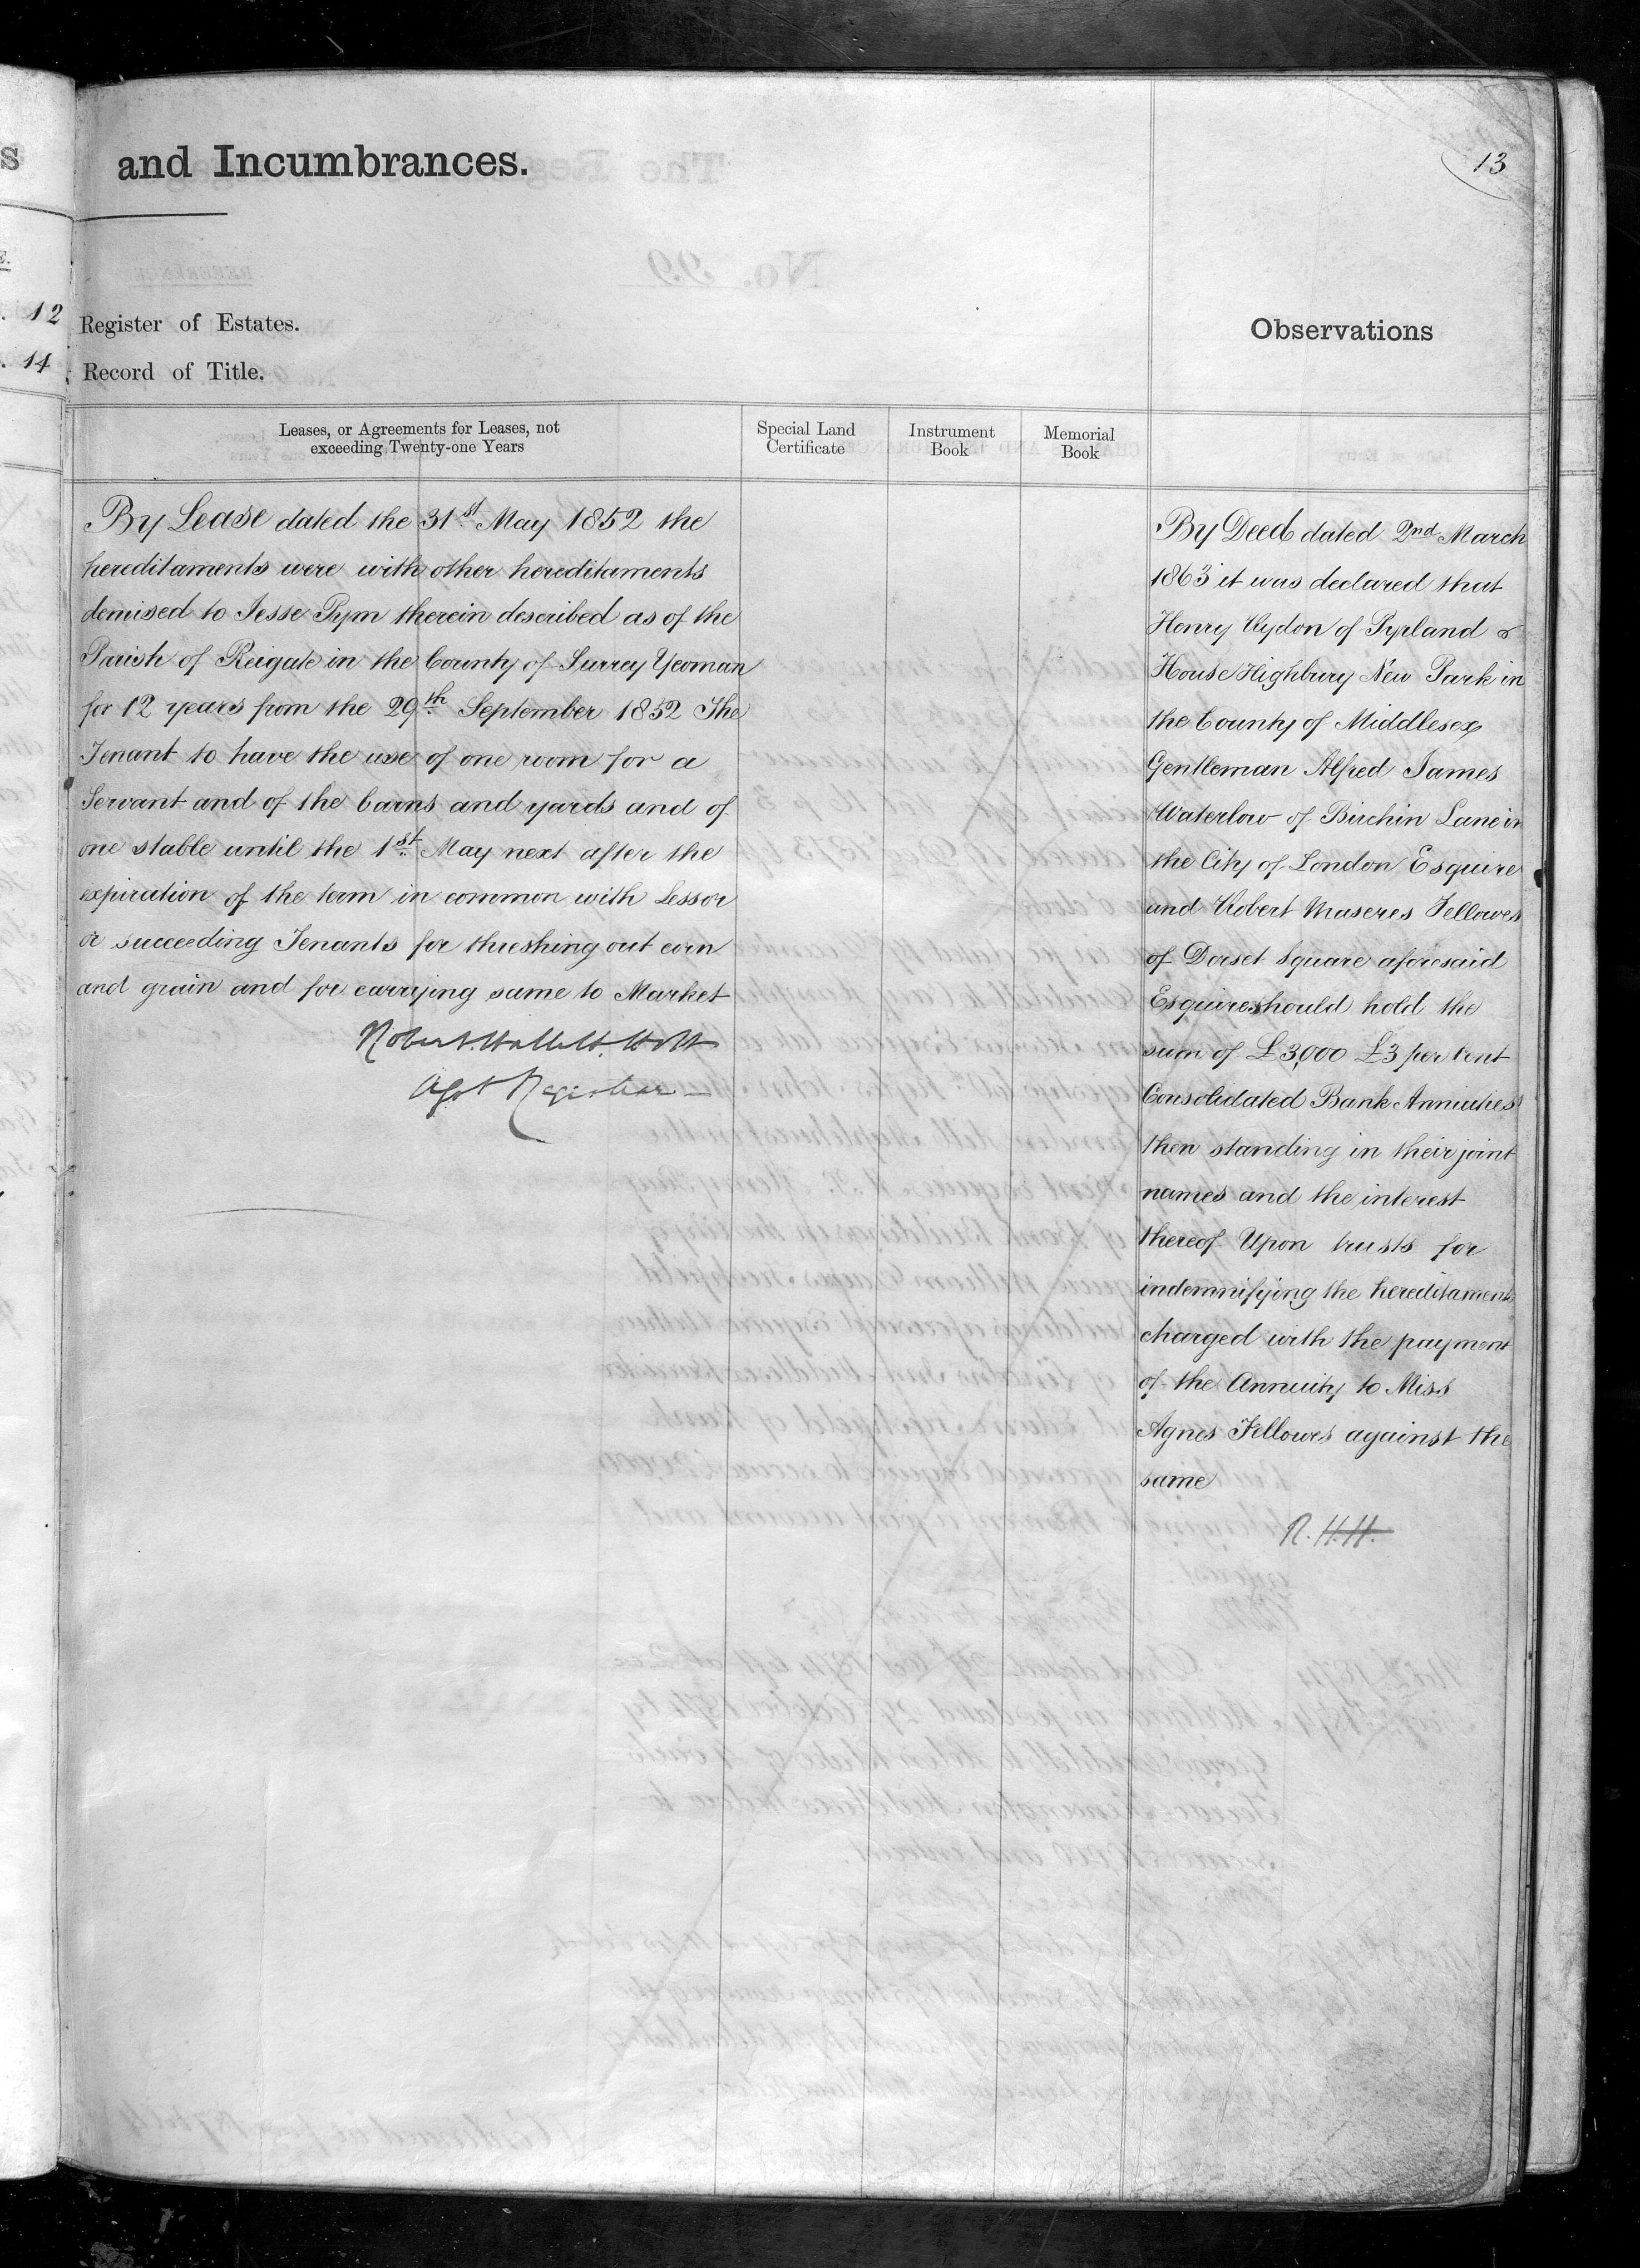 and Incumbrances.
13
12 Register of Estates.
14 Record of Title.
Observations
Leases, or Agreements for Leases, not
exceeding Twenty-one Years
Special Land
Certificate
Instrument
Book
Memorial
Book
By Lease dated the 31st May 1852 the
hereditaments were with other hereditaments
demised to Jesse Pym therein described as of the
Parish of Reigate in the County of Surrey Yeoman
for 12 years from the 29th September 1852 The
Tenant to have the use of one room for a
Servant and of the barns and yards and of
one stable until the 1st May next after the
expiration of the term in common with Lessor
or succeeding Tenants for threshing out corn
and grain and for carrying same to Market
Robert Hallett Holt
Asst Registrar
By Deed dated 2nd March
1863 it was declared that
Henry Hydon of Pyrland
House Highbury New Park in
the County of Middlesex
Gentleman Alfred James
Waterlow of Birchin Lane in
the City of London Esquire
and Robert Maseres Fellowes
of Dorset Square aforesaid
Esquire should hold the
sum of £3,000 £3 per Cent
Consolidated Bank Annuities
then standing in their joint
names and the interest
thereof Upon trusts for
indemnifying the hereditaments
charged with the payment
of the Annuity to Miss
Agnes Fellowes against the
same
R.H.H.